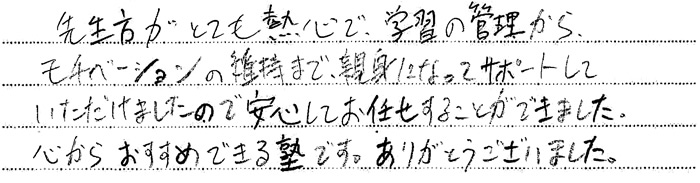 先生方がとても熱心で、学習の管理から、
モチベーションの維持まで、親身になってサポートして
いただけましたので安心してお任せすることができました。
心からおすすめできる塾です。ありがとうございました。